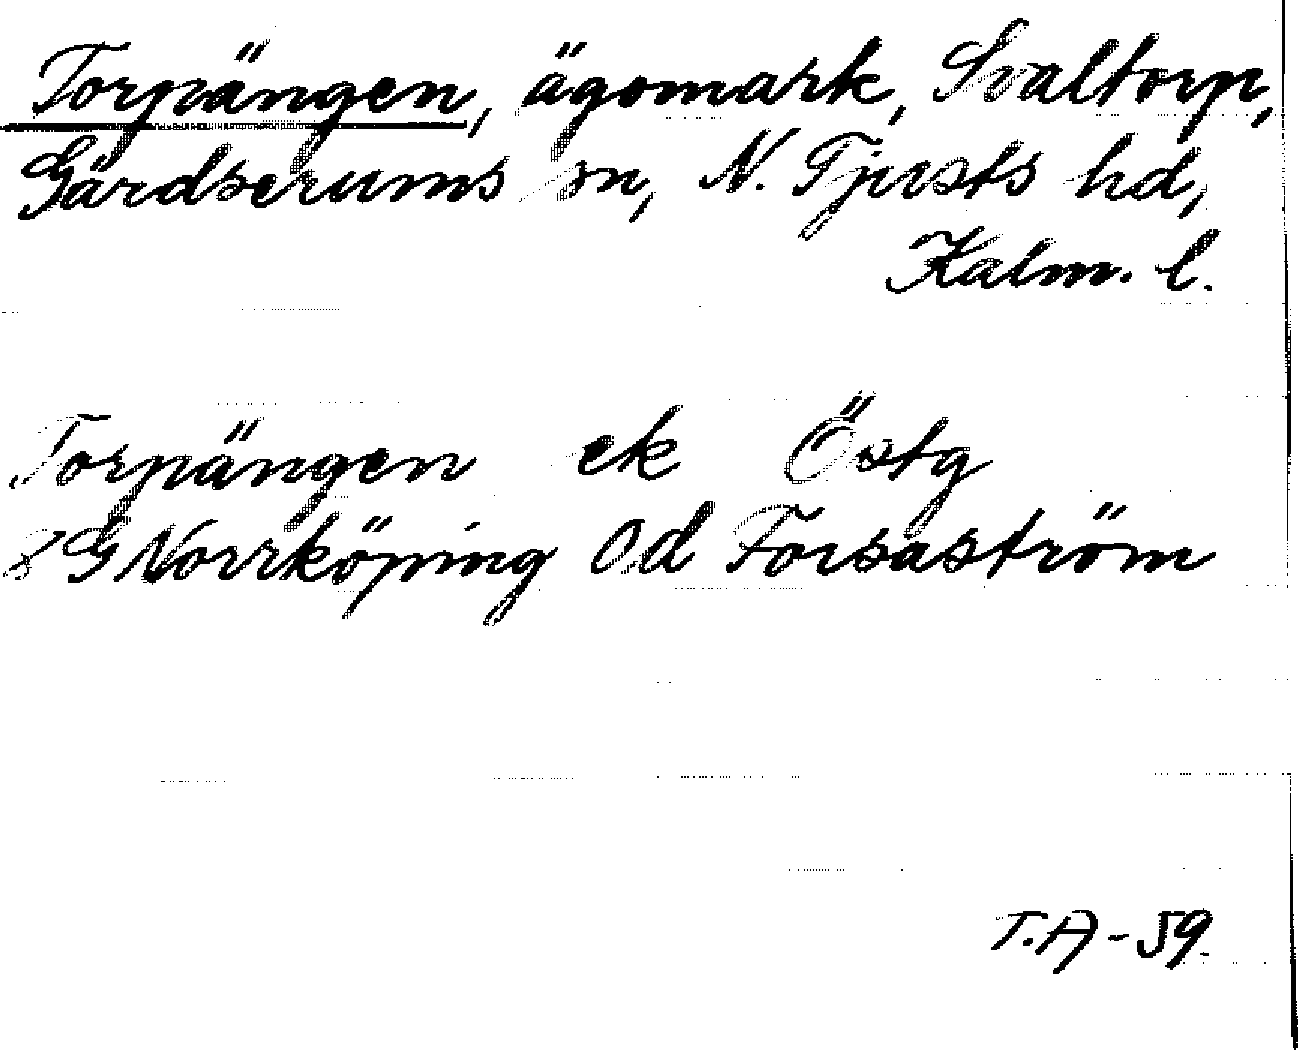 Torpängen, ägomark, Svaltorp,
Gärdserums sn, N. Tjusts hd,
Kalm. l.
Torpängen ek Östg
8G Norrköping 0d Forsaström
T.A-59